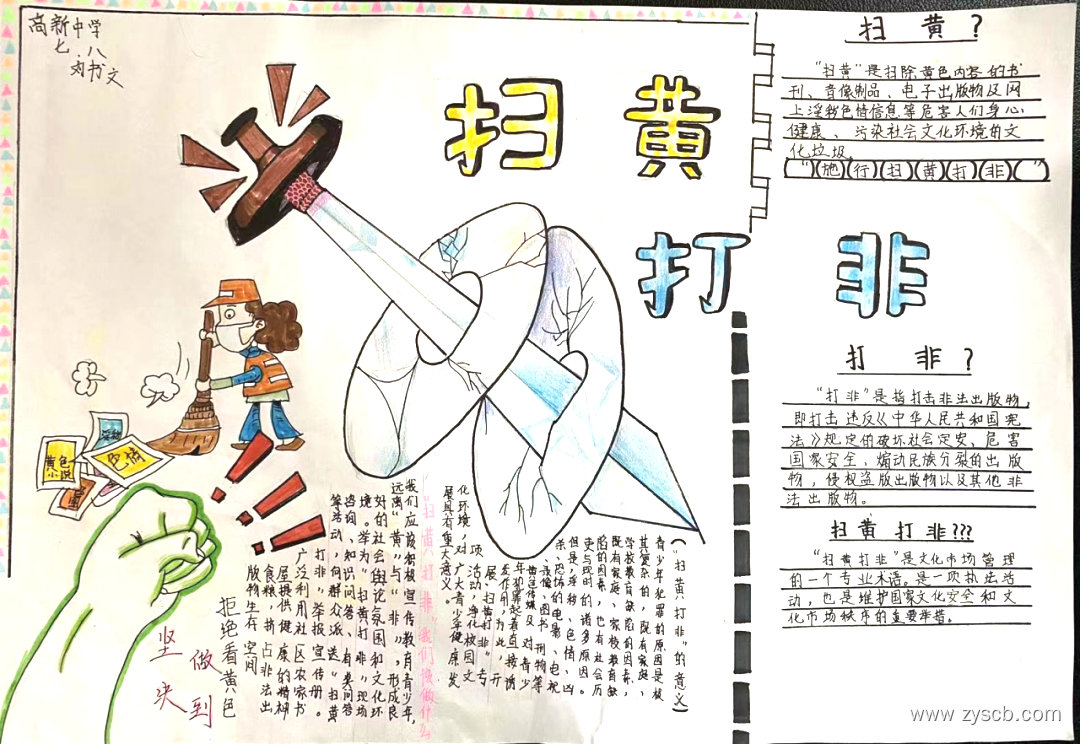 高新中学
七.八
扫黄
打非
扫黄?
“扫黄”是扫除黄色内容的书
刊、音像制品、电子出版物及网
上淫秽色情信息等危害人们身心
健康、污染社会文化环境的文
化垃圾。
打非?
“打非”是指打击非法出版物,
即打击违反《中华人民共和国宪
法》规定的破坏社会定安、危害
国家安全、煽动民族分裂的出版
物,侵权盗版出版物以及其他非
法出版物。
扫黄打非???
“扫黄打非”是文化市场管理
的一个专业术语。是一项执法活
动,也是维护国家文化安全和文
化市场秩序的重要举措。
(“扫黄打非”的意义)
青少年犯罪的原因是极
其复杂的,既有家庭、
学校教育缺陷的因素,
但是,淫秽、色情、凶
杀、恐怖的电影、电视
展“扫黄打非”专
项活动,净化校园文
化环境,对广大青少年健康发
展具有重大意义。
“扫黄打非”我们该做什么
我们应该积极宣传教育青少年,
远离“黄”与“非”,形成良
好的社会舆论氛围和文化环
境。举为“扫黄打非”现场
咨询、知识问答、有奖问答
等活动,向群众派送“扫黄
打非”举报宣传册。
广泛利用社区农家书
屋提供健康的精神
食粮,挤占非法出
版物生存空间
拒绝看黄色
坚决
做到
黄色
小说
色情
www.zyscb.com